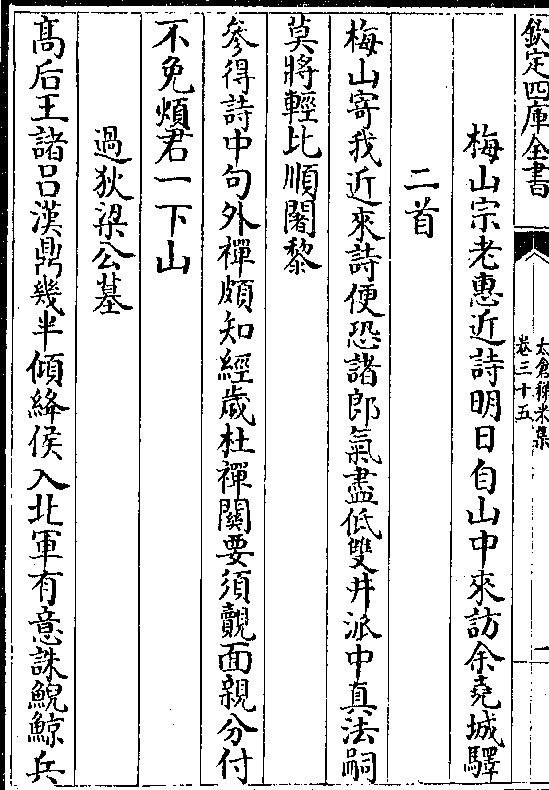 欽定四庫全書
太倉稊米集
卷三十五
二
梅山宗老惠近詩明日自山中來訪余堯城驛
二首
梅山寄我近來詩便恐諸郎氣盡低雙井派中真法嗣
莫將輕比順闍黎
參得詩中句外禪頗知經歲杜禪關要須覿面親分付
不免煩君一下山
過狄梁公墓
髙后王諸呂漢鼎幾半傾絳侯入北軍有意誅鯢鯨兵